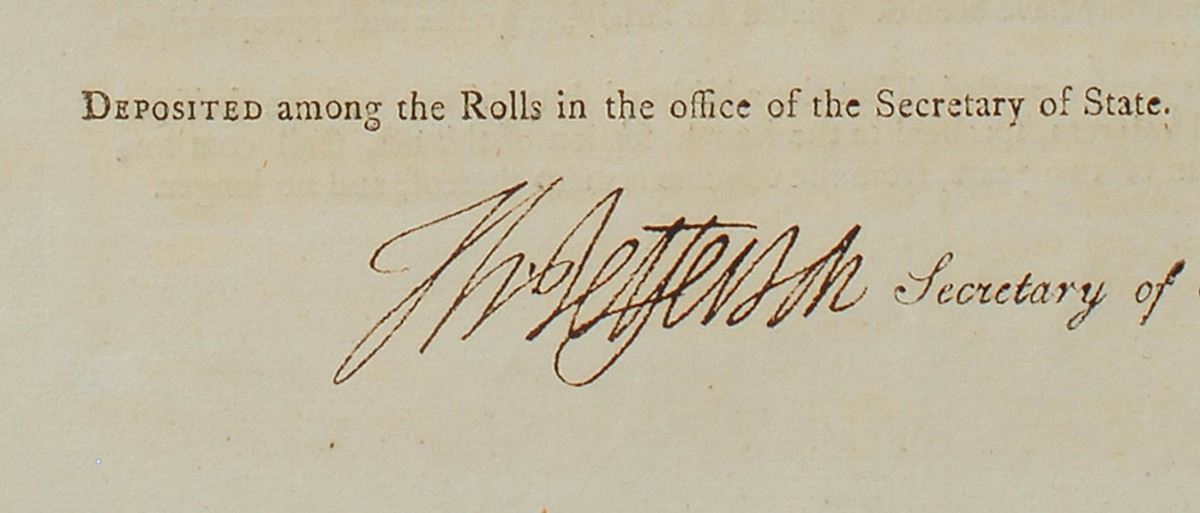 DEPOSITED among the Rolls in the office of the Secretary of State.
Th Jefferson Secretary of